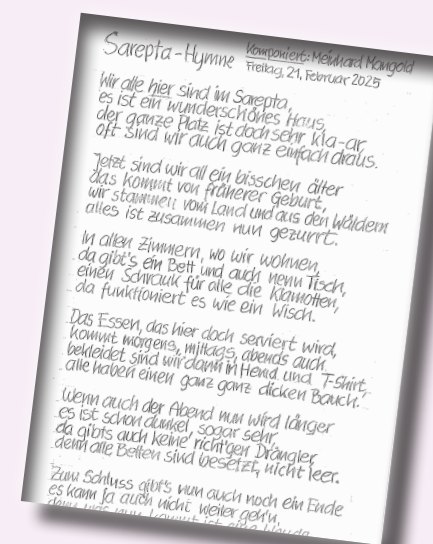 Sarepta-Hymne
Komponiert: Meinhard Mangold
Freitag, 21. Februar 2025
Wir alle hier sind im Sarepta,
es ist ein wunderschönes Haus,
der ganze Platz ist doch sehr kla-ar,
oft sind wir auch ganz einfach draus.
Jetzt sind wir all ein bisschen älter
das kommt von früherer Geburt,
wir stammen vom Land und aus den Wäldern
alles ist zusammen nun gezurrt.
In allen Zimmern, wo wir wohnen,
da gibt's ein Bett und auch nen Tisch,
einen Schrank für alle die Klamotten,
da funktioniert es wie ein Wisch.
Das Essen, das hier doch serviert wird,
kommt morgens, mittags, abends auch
bekleidet sind wir dann in Hemd und T-Shirt
alle haben einen ganz ganz dicken Bauch.
Wenn auch der Abend nun wird länger
es ist schon dunkel, sogar sehr,
da gibts auch keine richt'gen Drängler
denn alle Betten sind besetzt, nicht leer.
Zum Schluss gibt's nun auch noch ein Ende
es kann ja auch nicht weiter geh'n,
denn was nun kommt ist eine